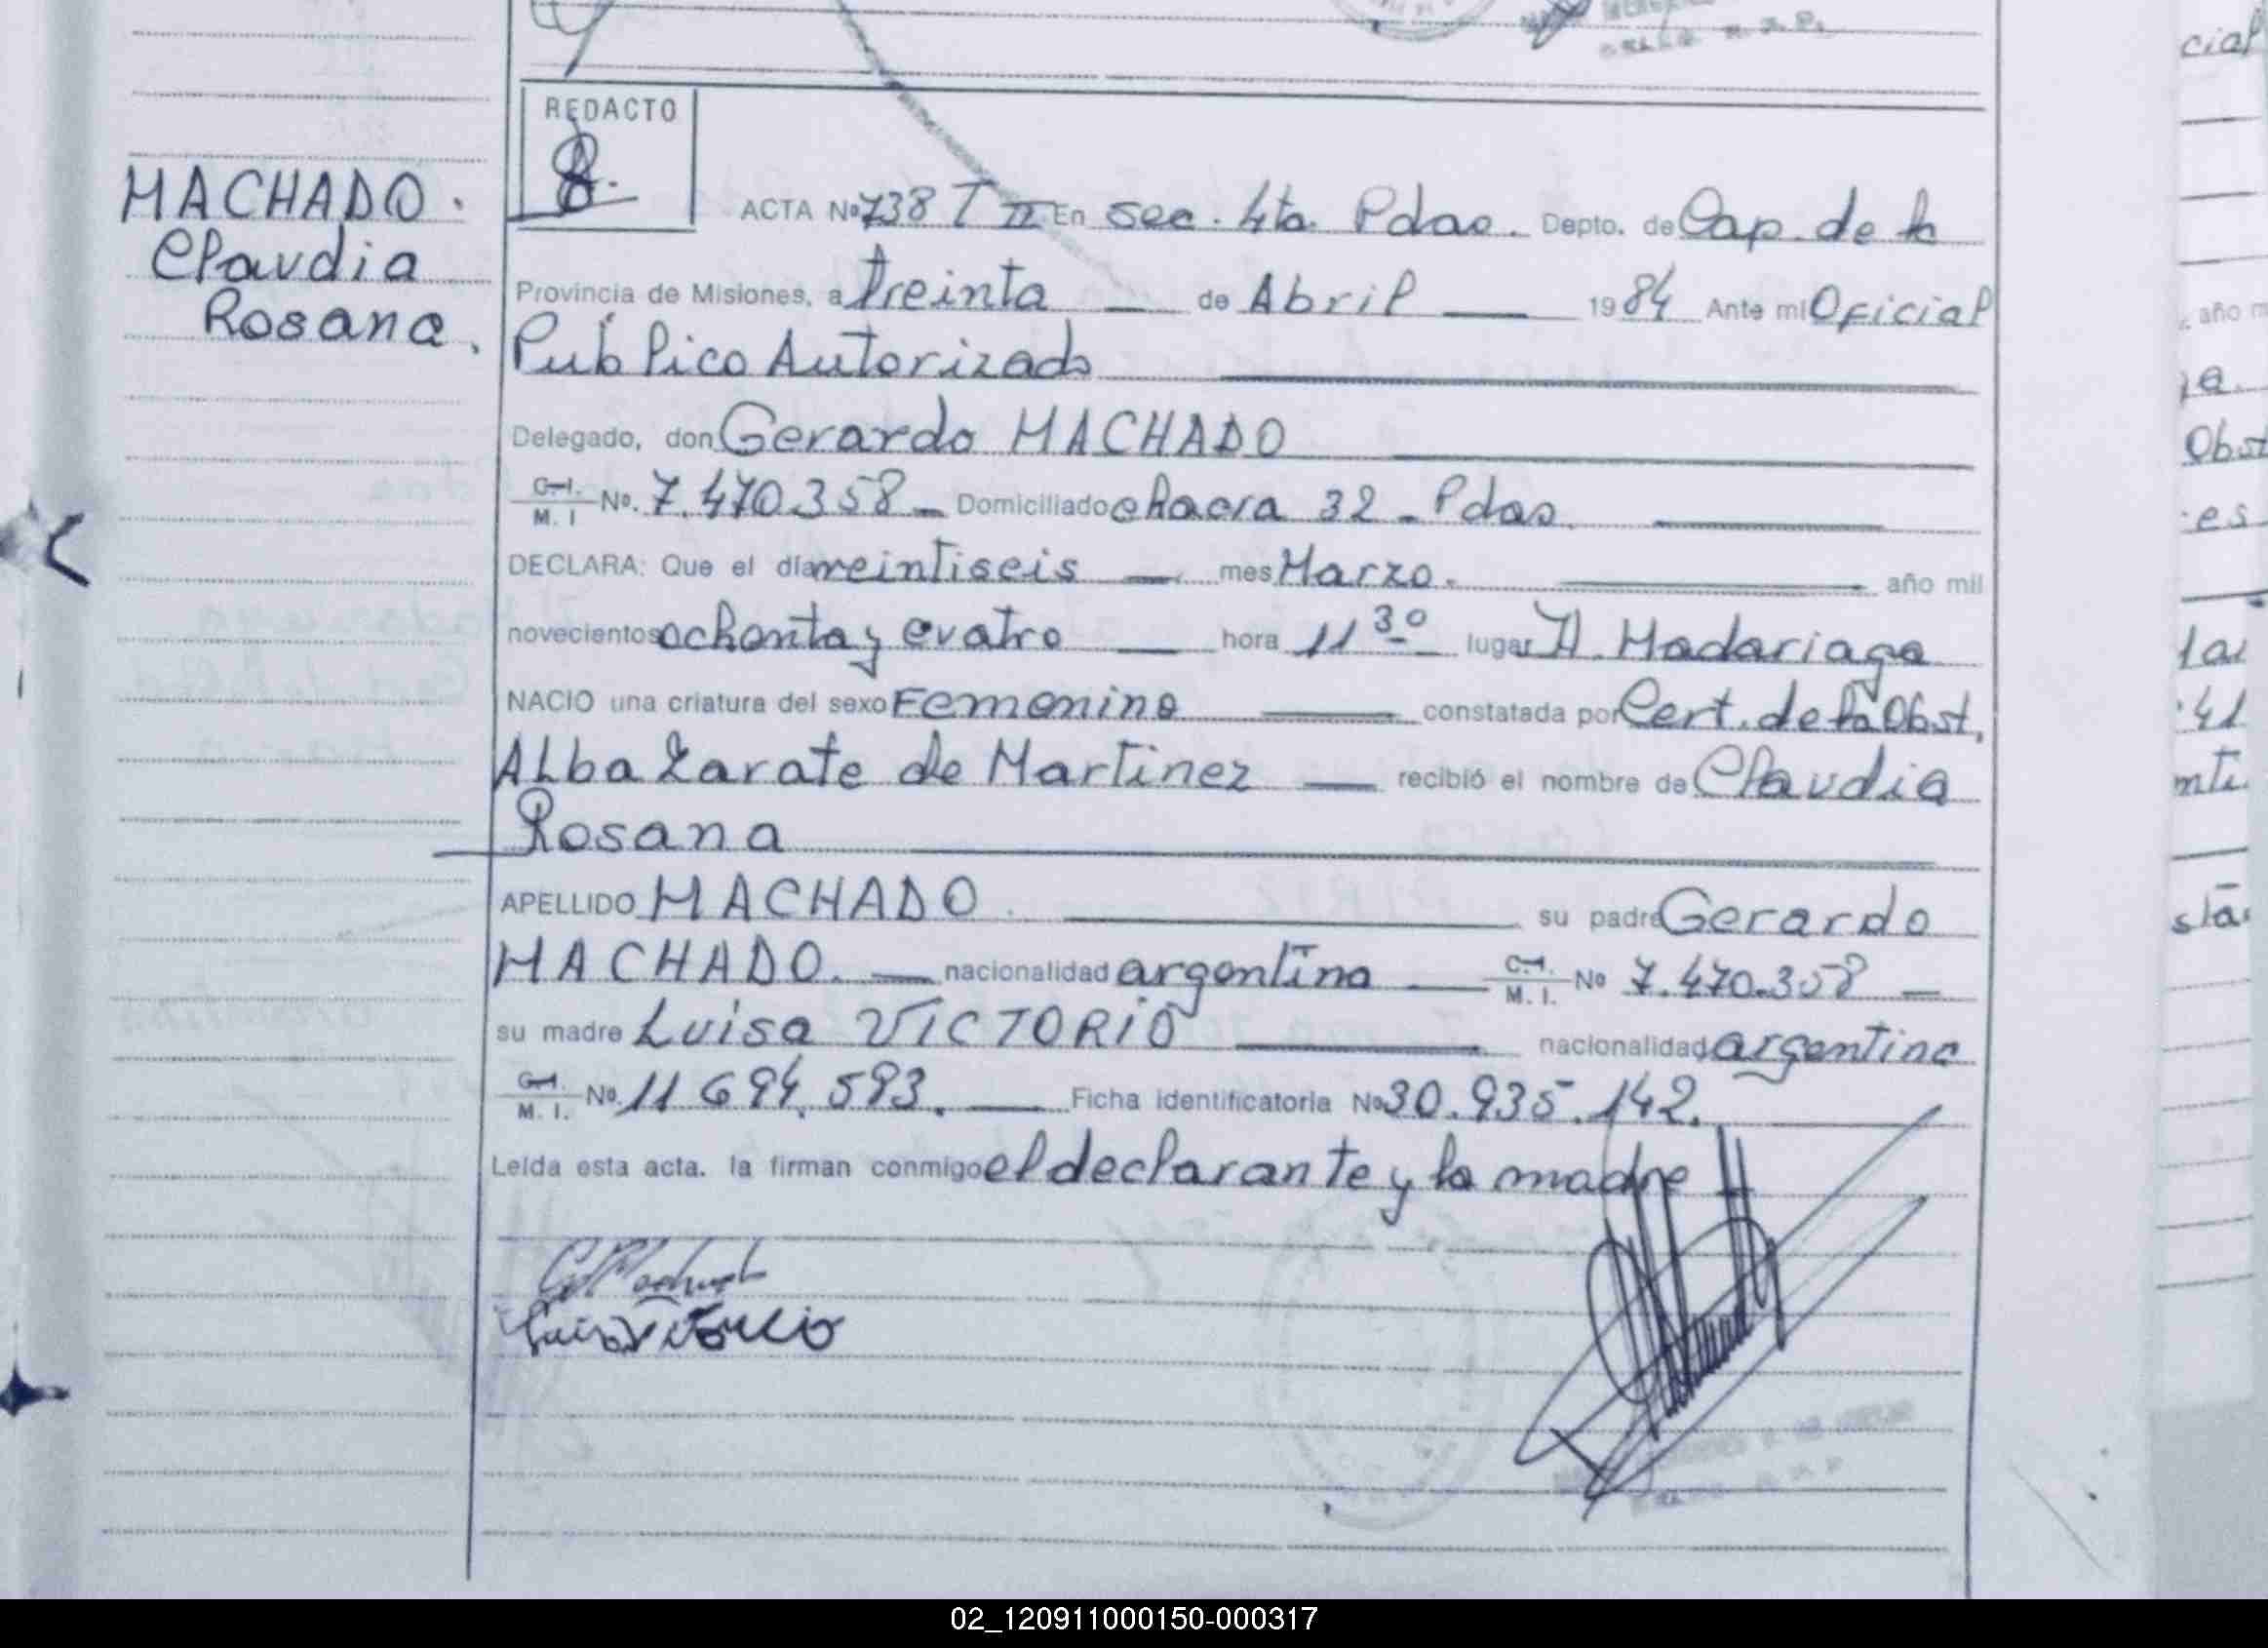 REDACTO
MACHADO.
Claudia
Rosana.
ACTA Nº 738 T II En sec. 4ta. Pdas. Depto. de Cap. de la
Provincia de Misiones, a treinta — de Abril — 1984 Ante mi Oficial
Público Autorizado
Delegado, don Gerardo MACHADO
C.I. M. I Nº. 7.470.358 — Domiciliado chacra 32 - Pdas.
DECLARA: Que el día veintiseis — mes Marzo. — año mil
novecientos ochenta y cuatro — hora 11 30 lugar H. Madariaga
NACIO una criatura del sexo Femenino — constatada por Cert. de la Obst.
Alba Zarate de Martinez — recibió el nombre de Claudia
Rosana
APELLIDO MACHADO — su padre Gerardo
MACHADO. — nacionalidad argentina — C.I. M. I. Nº 7.470.358 —
su madre Luisa VICTORIO — nacionalidad argentina
C.I. M. I. Nº. 11 694.593. — Ficha identificatoria Nº 30.935.142.
Leída esta acta. la firman conmigo el declarante y la madre
02_120911000150-000317